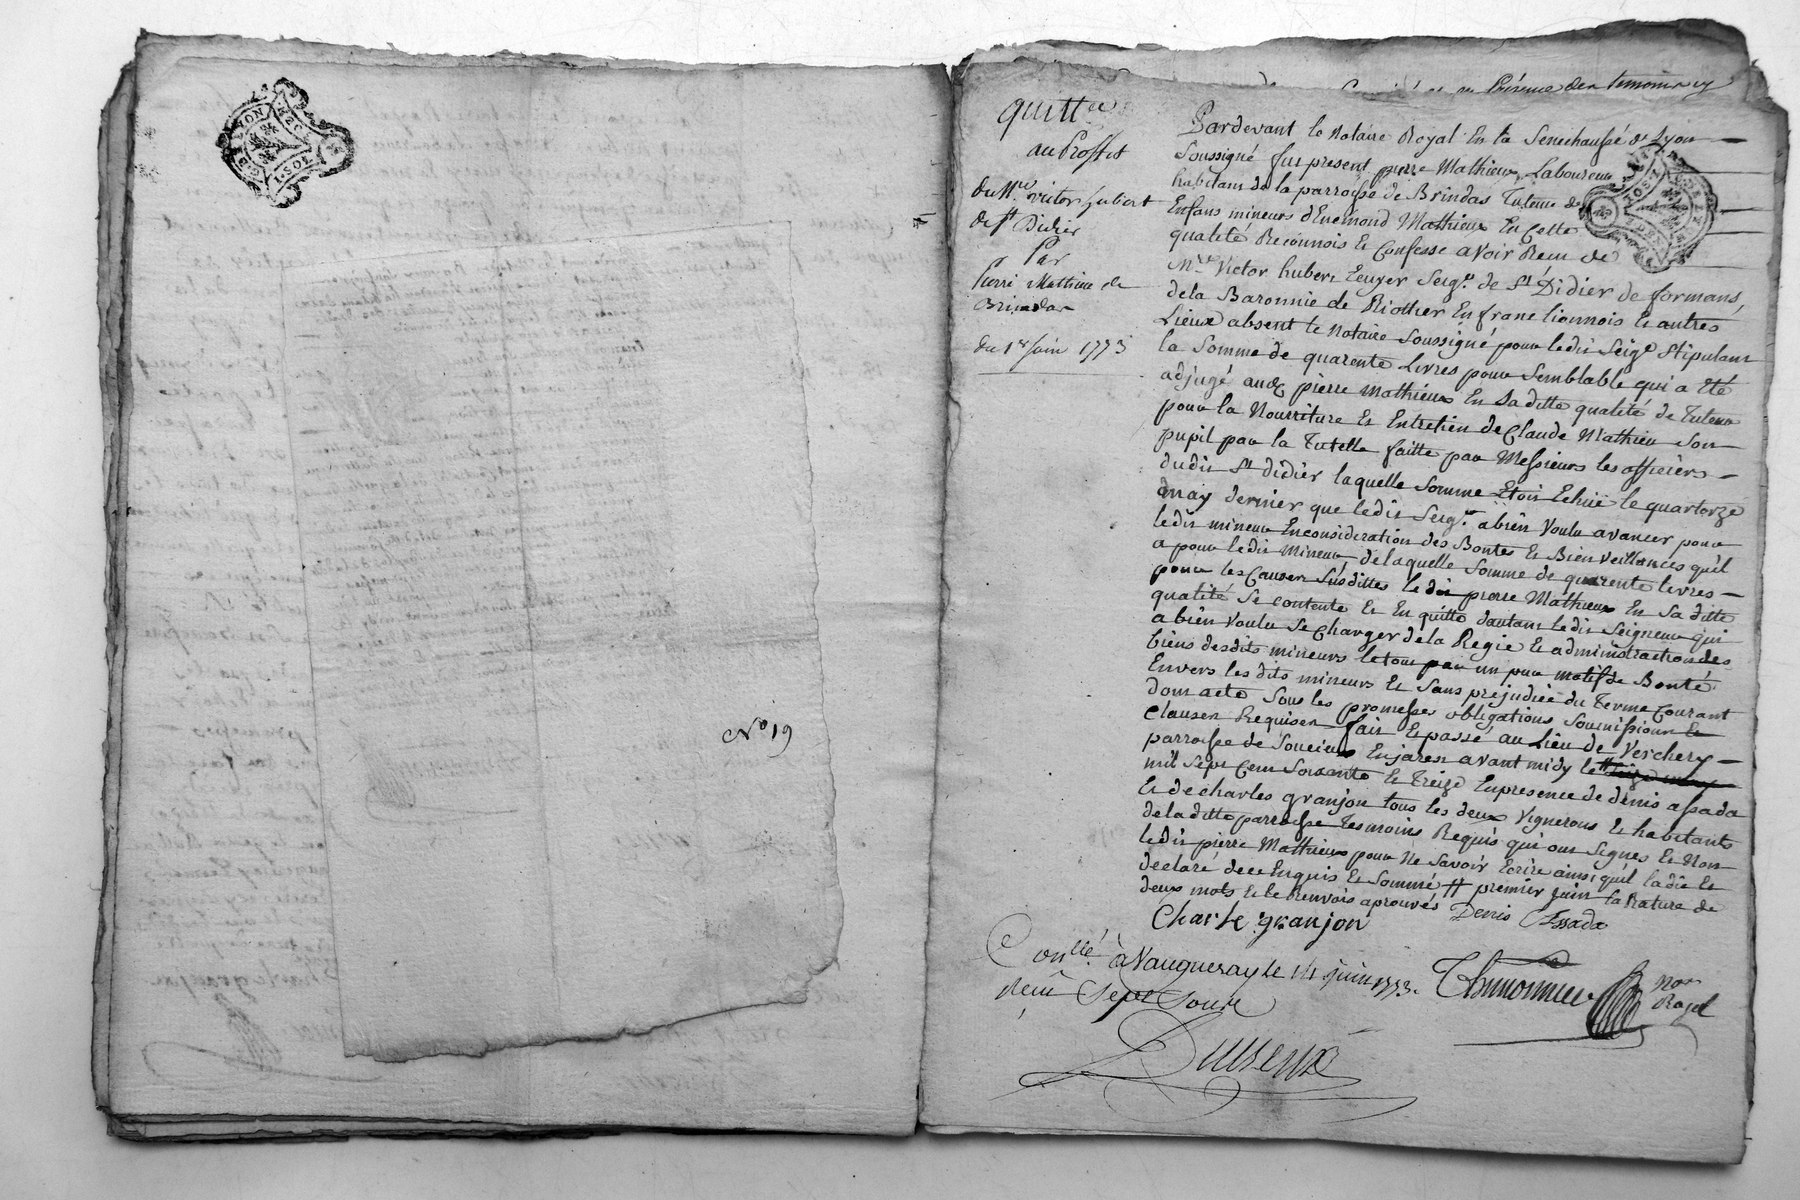 DE LYON
1·SOL
No 19
quitt.ce
au Proffit
du M.re victor hubert
de S.t Didier
Par
Pierre Mathieu de
Brindas
du 1.er juin 1773
en Présence des temoins
Pardevant le Notaire Royal En la Senechaussé de Lyon
Soussigné fut present pierre Mathieu, Laboureur
habitant de la parroisse de Brindas Tuteur des
Enfans mineurs d'Enemond Mathieu En Cette
qualité Reconnois et Confesse avoir Reçu de
M.re Victor hubert Ecuyer Seig.r de S.t Didier de formans,
dela Baronnie de Riottier En franc lionnois Et autres
Lieux absent le Notaire Soussigné pour ledit Seig.r Stipulant
la Somme de quarente Livres pour Semblable qui a Eté
adjugé audt pierre Mathieu En Saditte qualité de Tuteur
pour la Nourriture Et Entretien de Claude Mathieu Son
pupil par la Tutelle faitte par Messieurs les officiers
dudit S.t didier laquelle Somme Etoit Echuë le quartorze
may dernier que ledit Seig.r a bien Voulu avancer pour
ledit mineur Enconsideration des Bontes Et Bien veillances qu'il
a pour ledit Mineur, delaquelle Somme de quarente livres
pour les Causes Susdittes ledit pierre Mathieu En Sa ditte
qualité Se contente Et En quitte d'autant ledit Seigneur qui
a bien Voulu Se Charger dela Regie Et administraction des
biens desdits mineurs letout par un pur motif de Bonté
Envers les dits mineurs Et Sans préjudice du Terme Courant
dont acte Sous les promesses obligations Soumissions Et
Clauses Requises fait Et passé au Lieu de Verchery
parroisse de Soucieu Enjarest avant midy le
mil Sept Cent Soixante Et Treize Enpresence de denis assada
Et de charles granjon tous les deux Vignerons Et habitants
deladitte parroisse Tesmoins Requis qui ont Signes Et Non
ledit pierre Mathieu pour Ne Savoir Ecrire ainsi qu'il la dit Et
declaré dece Enquis Et Sommé # premier juin la Rature de
deux mots Et le Renvois aprouvés Denis Assada
Charle granjon
Con.llé à Vaugneray le 14 juin 1773.
Reçu Sept Sous
Not.re
Royal